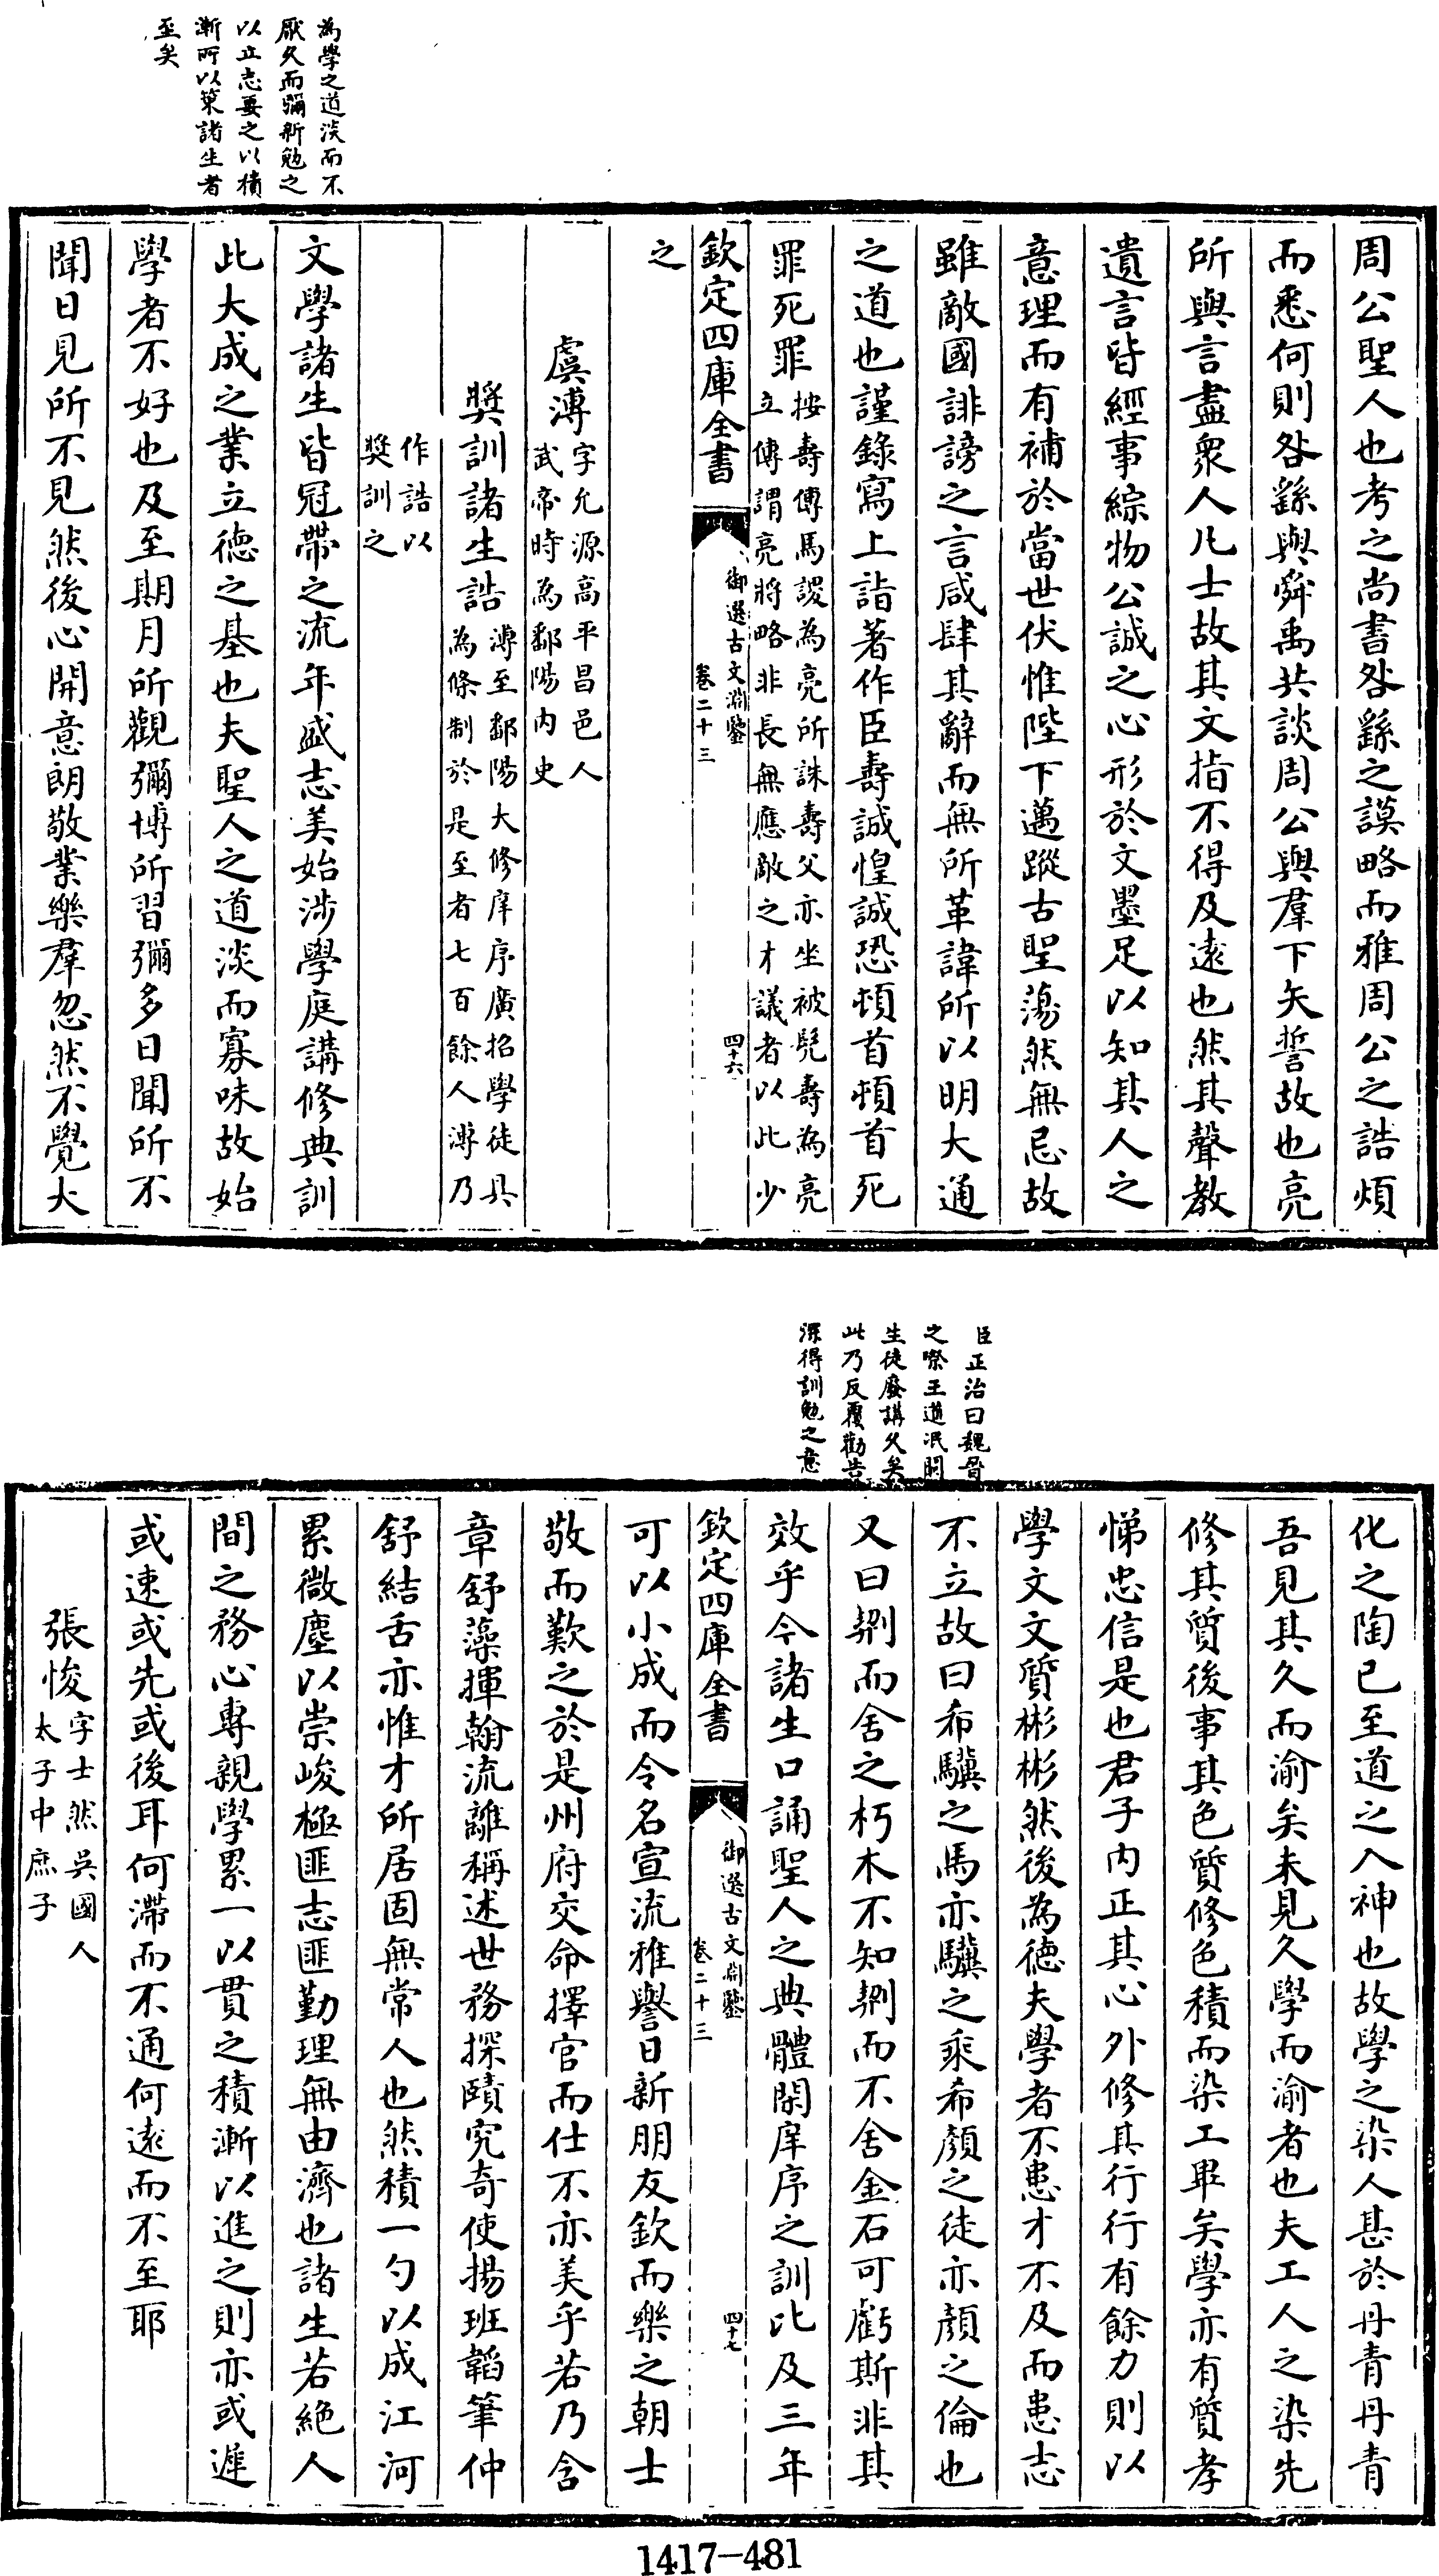 為學之道淡而不
厭久而彌新勉之
以立志要之以積
漸所以策諸生者
至矣
周公聖人也考之尚書咎繇之謨略而雅周公之誥煩
而悉何則咎繇與舜禹共談周公與羣下矢誓故也亮
所與言盡衆人凡士故其文指不得及逺也然其聲教
遺言皆經事綜物公誠之心形於文墨足以知其人之
意理而有補於當世伏惟陛下邁蹤古聖蕩然無忌故
雖敵國誹謗之言咸肆其辭而無所革諱所以明大通
之道也謹錄寫上詣著作臣壽誠惶誠恐頓首頓首死
罪死罪按壽傳馬謖為亮所誅壽父亦坐被髠壽為亮
立傳謂亮將略非長無應敵之才議者以此少
欽定四庫全書
御選古文淵鑒
卷二十三
四十六
之
虞溥字允源高平昌邑人
武帝時為鄱陽内史
奬訓諸生誥溥至鄱陽大修庠序廣招學徒具
為條制於是至者七百餘人溥乃
作誥以
奬訓之
文學諸生皆冠帶之流年盛志美始涉學庭講修典訓
此大成之業立徳之基也夫聖人之道淡而寡味故始
學者不好也及至期月所觀彌博所習彌多日聞所不
聞日見所不見然後心開意朗敬業樂羣忽然不覺大
臣正治曰魏晉
之際王道泯閼
生徒廢講久矣
此乃反覆勸告
深得訓勉之意
化之陶已至道之入神也故學之染人甚於丹青丹青
吾見其久而渝矣未見久學而渝者也夫工人之染先
修其質後事其色質修色積而染工畢矣學亦有質孝
悌忠信是也君子内正其心外修其行行有餘力則以
學文文質彬彬然後為徳夫學者不患才不及而患志
不立故曰希驥之馬亦驥之乘希顏之徒亦顏之倫也
又曰鍥而舍之朽木不知鍥而不舍金石可虧斯非其
效乎今諸生口誦聖人之典體閑庠序之訓比及三年
欽定四庫全書
御選古文淵鑒
卷二十三
四十七
可以小成而令名宣流雅譽日新朋友欽而樂之朝士
敬而歎之於是州府交命擇官而仕不亦美乎若乃含
章舒藻揮翰流離稱述世務探賾究奇使揚班韜筆仲
舒結舌亦惟才所居固無常人也然積一勺以成江河
累微塵以崇峻極匪志匪勤理無由濟也諸生若絶人
間之務心專親學累一以貫之積漸以進之則亦或遲
或速或先或後耳何滯而不通何逺而不至耶
張悛字士然吳國人
太子中庶子
1417-481